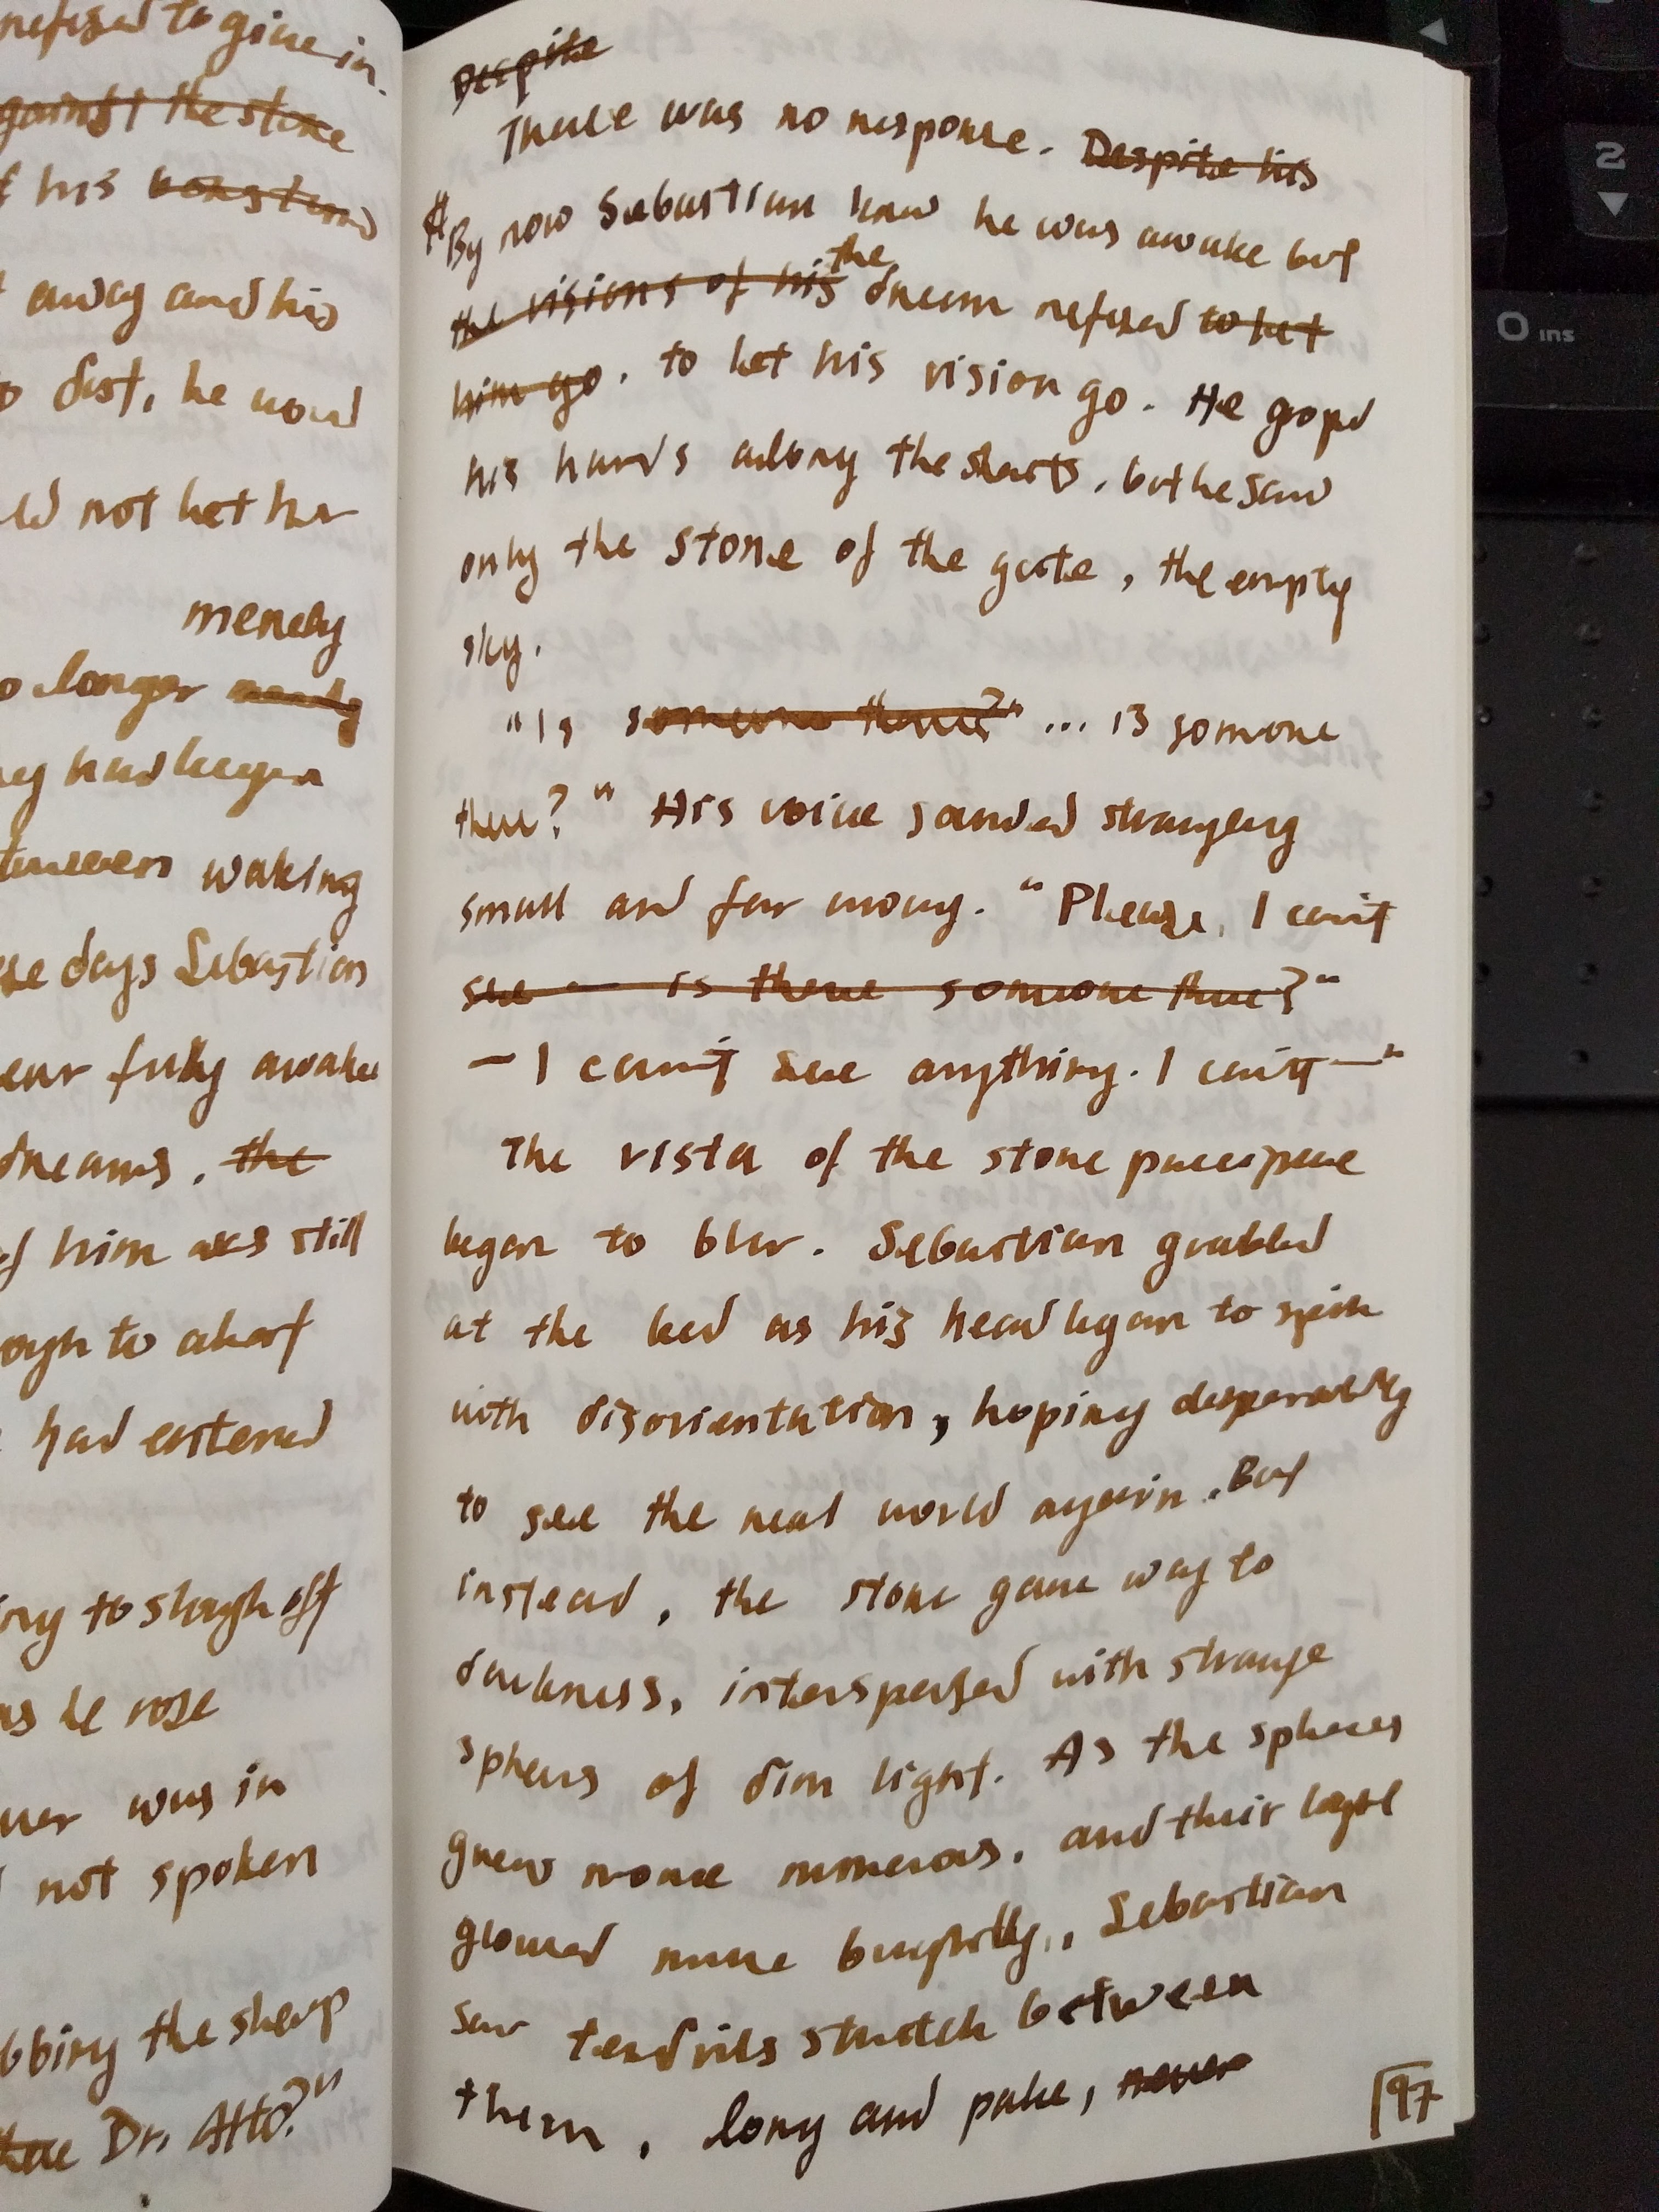 refused to give in.
against the stone
his
away and his
dust, he would
not let her
merely
no longer
had begun
between waking
days Sebastian
fully awake
dreams, the
of him was still
to
had entered
to slough off
as he rose
was in
not spoken
the sleep
Dr. Atto?"
Despite
There was no response. Despite his
By now Sebastian knew he was awake but
the
the visions of his dream refused to let
him go. to let his vision go. He groped
his hands along the sheets, but he saw
only the stone of the gate, the empty
sky.
"Is someone there?" ... is somone
there?" His voice sounded strangely
small and far away. "Please, I can't
see — is there someone there?"
— I can't see anything. I can't —"
The vista of the stone
began to blur. Sebastian grabbed
at the bed as his head began to spin
with disorientation, hoping desperately
to see the real world again. But
instead, the stone gave way to
darkness, interspersed with strange
spheres of dim light. As the spheres
grew more numerous, and their light
glowed more brightly, Sebastian
saw tendrils stretch between
them, long and pale, never
97
2
0 ins